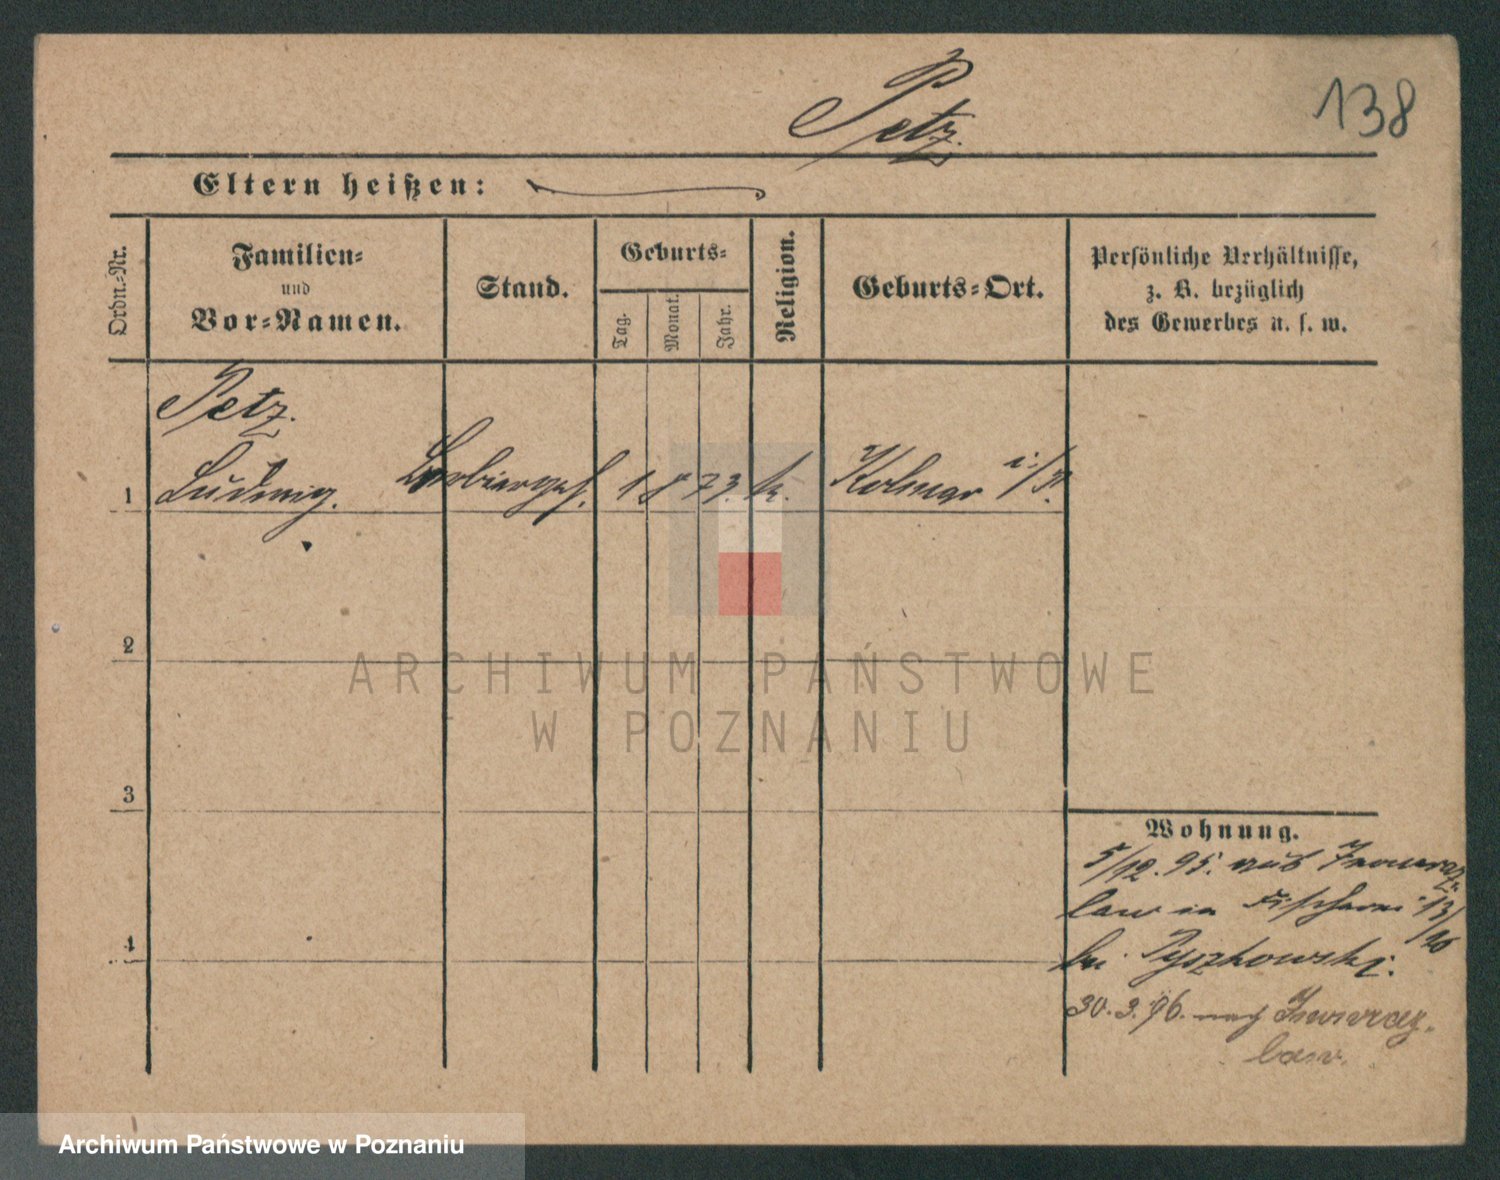 Petz.
138
Eltern heißen:
Ordn.-Nr.
Familien-
und
Vor-Namen.
Stand.
Geburts-
Tag.
Monat.
Jahr.
Religion.
Geburts-Ort.
Persönliche Verhältnisse,
z. B. bezüglich
des Gewerbes u. s. w.
Petz.
1 Ludwig. Barbiergeh. 1873. k. Kolmar i/P.
2
3
4
Wohnung.
5/12.95. aus Inowraz-
law in Fischerei 13/
bei Pyszkowski.
30.3.96. nach Inowraz-
law.
ARCHIWUM PAŃSTWOWE
W POZNANIU
Archiwum Państwowe w Poznaniu